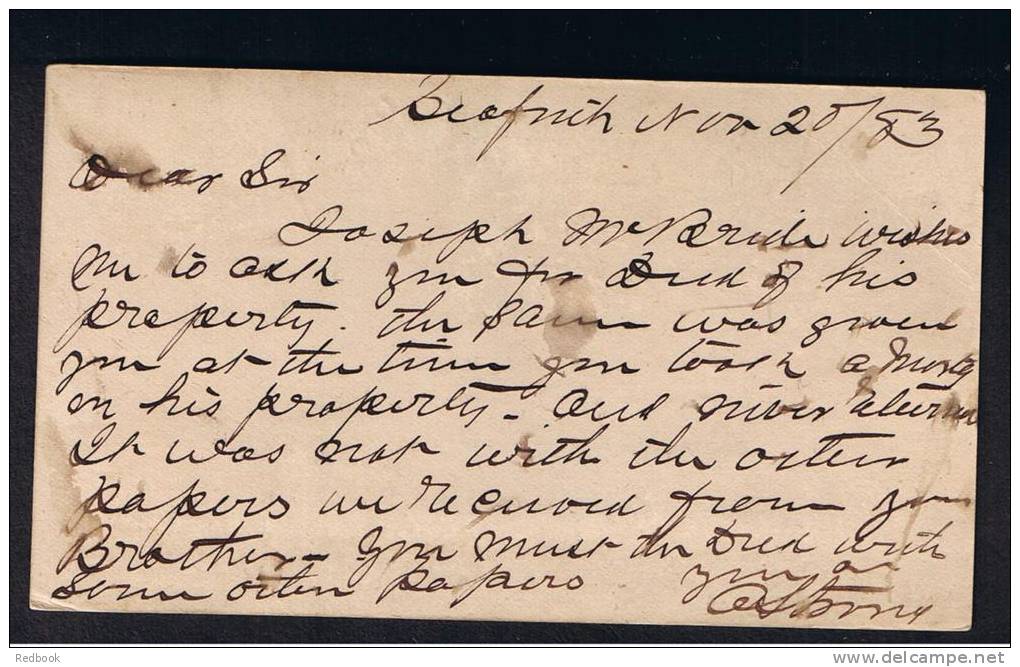 Seaforth Nov 20/83
Dear Sir
Joseph McBride wishes
me to ask you for Deed of his
property. the same was given
you at the time you took a Mortg
on his property - and never returned
It was not with the other
papers we received from your
Brother - You must the Deed with
some other papers you
Redbook
delcampe.net